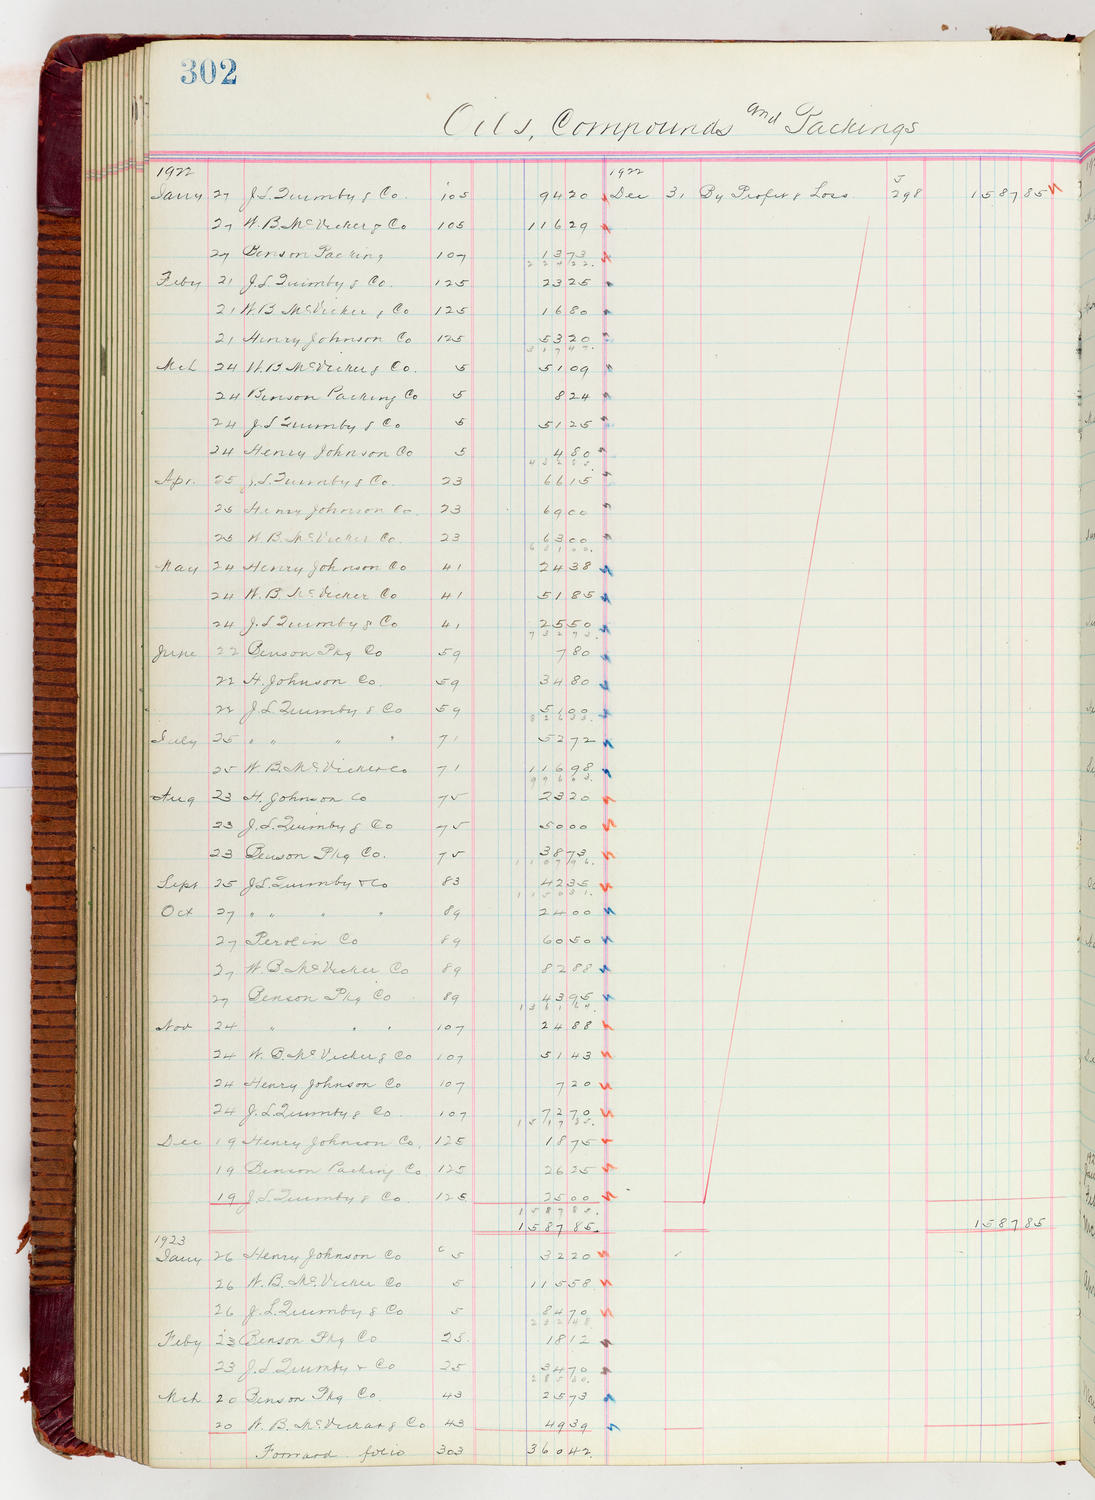 302
Oils, Compounds and Packings
1922 1922
Jany 27 J.L. Quimby & Co. 105 94 20 Dec 31 By Profit & Loss J 298 1587 85
27 W.B. McVicker & Co 105 116 29
27 Benson Packing 107 13 73
224 22.
Feby 21 J.L. Quimby & Co. 125 23 25
21 W.B. McVicker & Co 125 16 80
21 Henry Johnson Co 125 53 20
317 47.
Mch 24 W.B McVicker & Co. 5 51 09
24 Benson Packing Co 5 8 24
24 J.L Quimby & Co 5 51 25
24 Henry Johnson Co 5 4 80
432 85.
Apr. 25 J.L. Quimby & Co. 23 66 15
25 Henry Johnson Co. 23 69 00
25 W.B. McVicker Co. 23 63 00
631 00.
May 24 Henry Johnson Co 41 24 38
24 W.B McVicker Co 41 51 85
24 J.L. Quimby & Co 41 25 50
732 73.
June 22 Benson Pkg Co 59 7 80
22 H. Johnson Co. 59 34 80
22 J.L. Quimby & Co 59 51 00
826 33.
July 25 " " " " 71 52 72
25 W.B. McVicker & Co 71 116 98
996 03.
Aug 23 H. Johnson Co 75 23 20
23 J.L. Quimby & Co 75 50 00
23 Benson Pkg Co. 75 38 73
1107 96.
Sept 25 J.L. Quimby & Co 83 42 35
1150 31.
Oct 27 " " " " 89 24 00
27 Perolin Co 89 60 50
27 W.B. McVicker Co 89 82 88
27 Benson Pkg Co 89 43 95
1361 64.
Nov 24 " " " 107 24 88
24 W.B. McVicker & Co 107 51 43
24 Henry Johnson Co 107 7 20
24 J.L. Quimby & Co. 107 72 70
1517 85.
Dec 19 Henry Johnson Co. 125 18 75
19 Benson Packing Co 125 26 25
19 J.L. Quimby & Co. 125 25 00
1587 85.
1587 85. 1587 85
1923
Jany 26 Henry Johnson Co C 5 32 20
26 W.B. McVicker Co 5 115 58
26 J.L. Quimby & Co 5 84 70
232 48
Feby 23 Benson Pkg Co 25 18 12
23 J.L Quimby & Co 25 34 70
285 30.
Mch 20 Benson Pkg Co. 43 25 73
20 W.B. McVickar & Co 43 49 39
Forward folio 303 360 42